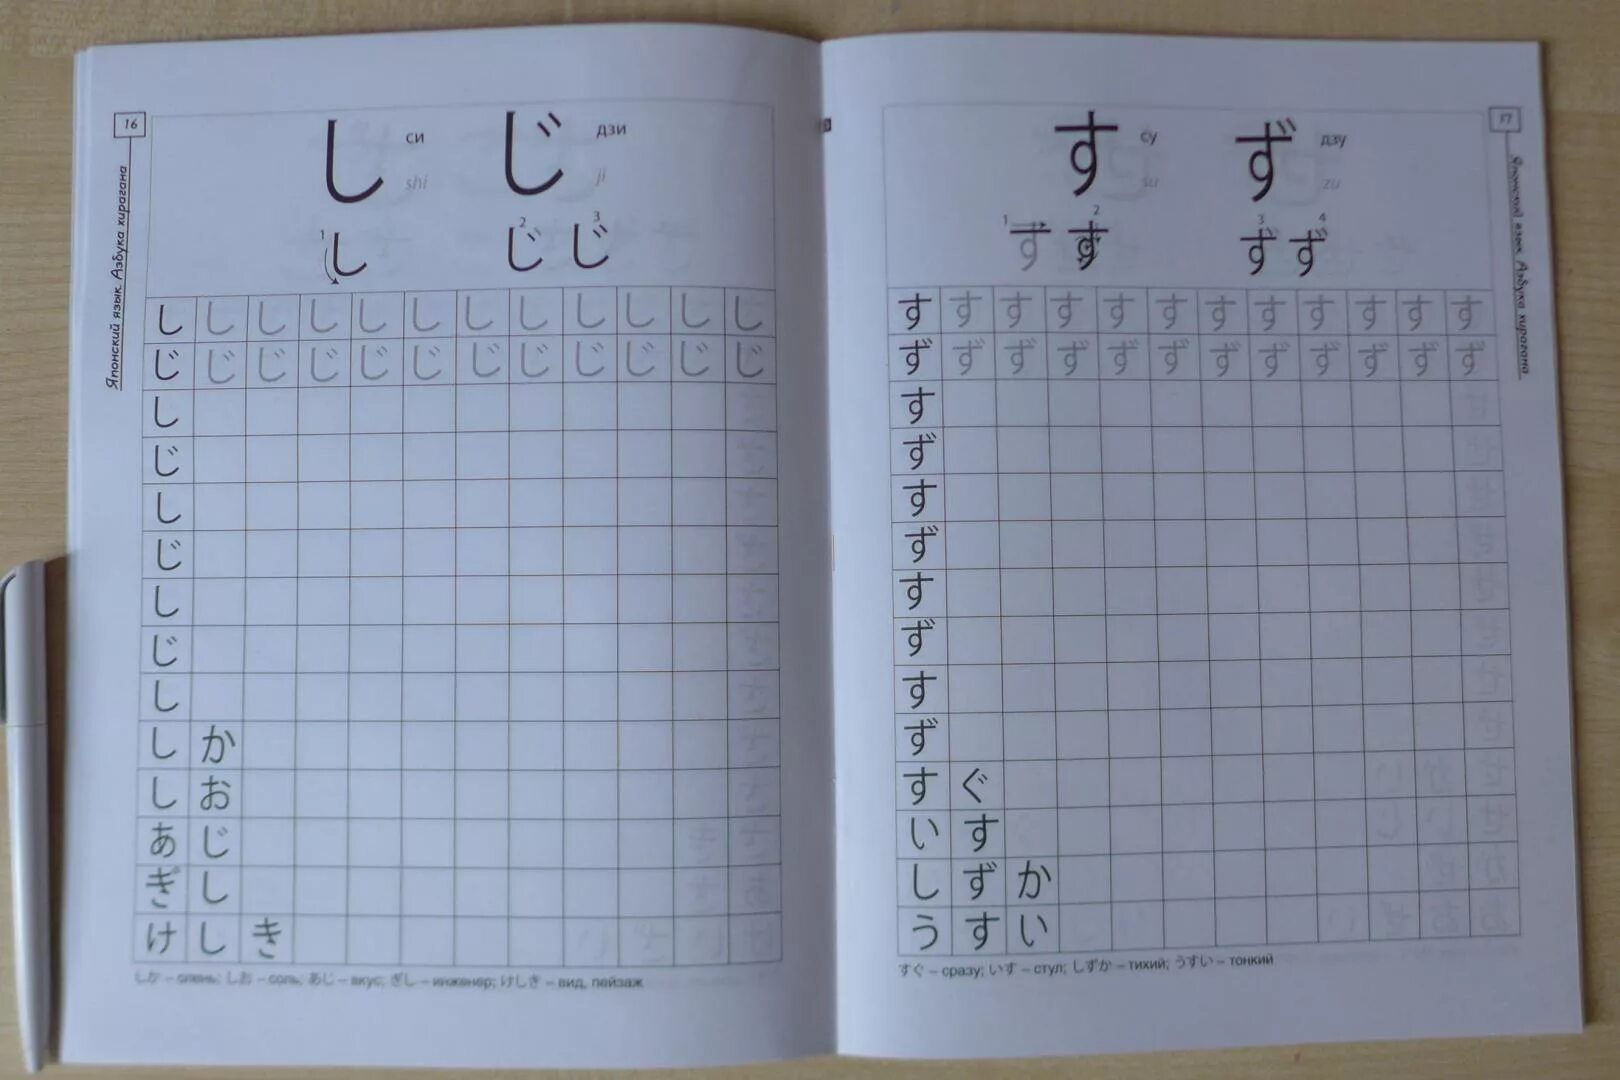 16
Японский язык. Азбука хирагана
し си じ дзи
shi ji
1 2 3
し じ じ
し し し し し し し し し し し し
じ じ じ じ じ じ じ じ じ じ じ じ
し
じ
し
じ
し
じ
し
しか
しお
あじ
ぎし
けしき
しか – олень; しお – соль; あじ – вкус; ぎし – инженер; けしき – вид, пейзаж
17
Японский язык. Азбука хирагана
す су ず дзу
su zu
1 2 3 4
す す ず ず
す す す す す す す す す す す す
ず ず ず ず ず ず ず ず ず ず ず ず
す
ず
す
ず
す
ず
す
ず
すぐ
いす
しずか
うすい
すぐ – сразу; いす – стул; しずか – тихий; うすい – тонкий